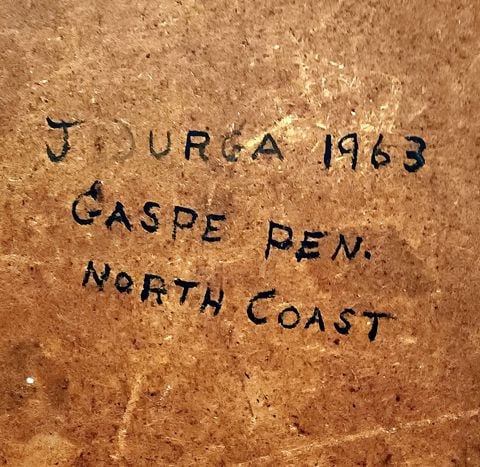 J DURGA 1963
GASPE PEN.
NORTH COAST